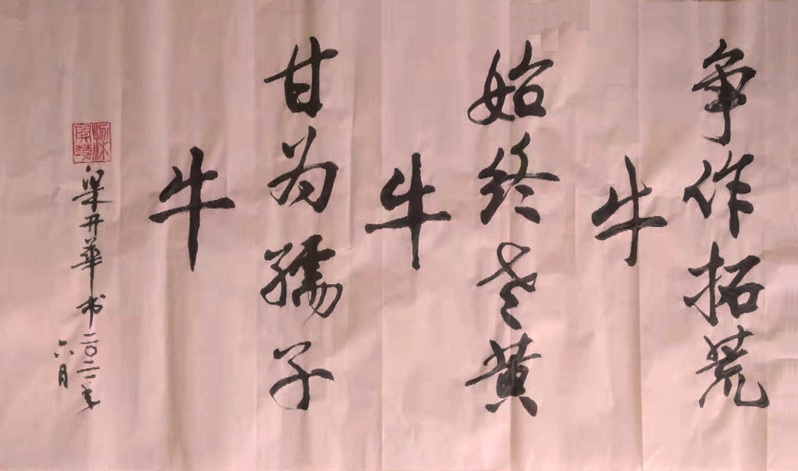 争作拓荒
牛
始终老黄
牛
甘为孺子
牛
梁开华书二〇二一年
六月